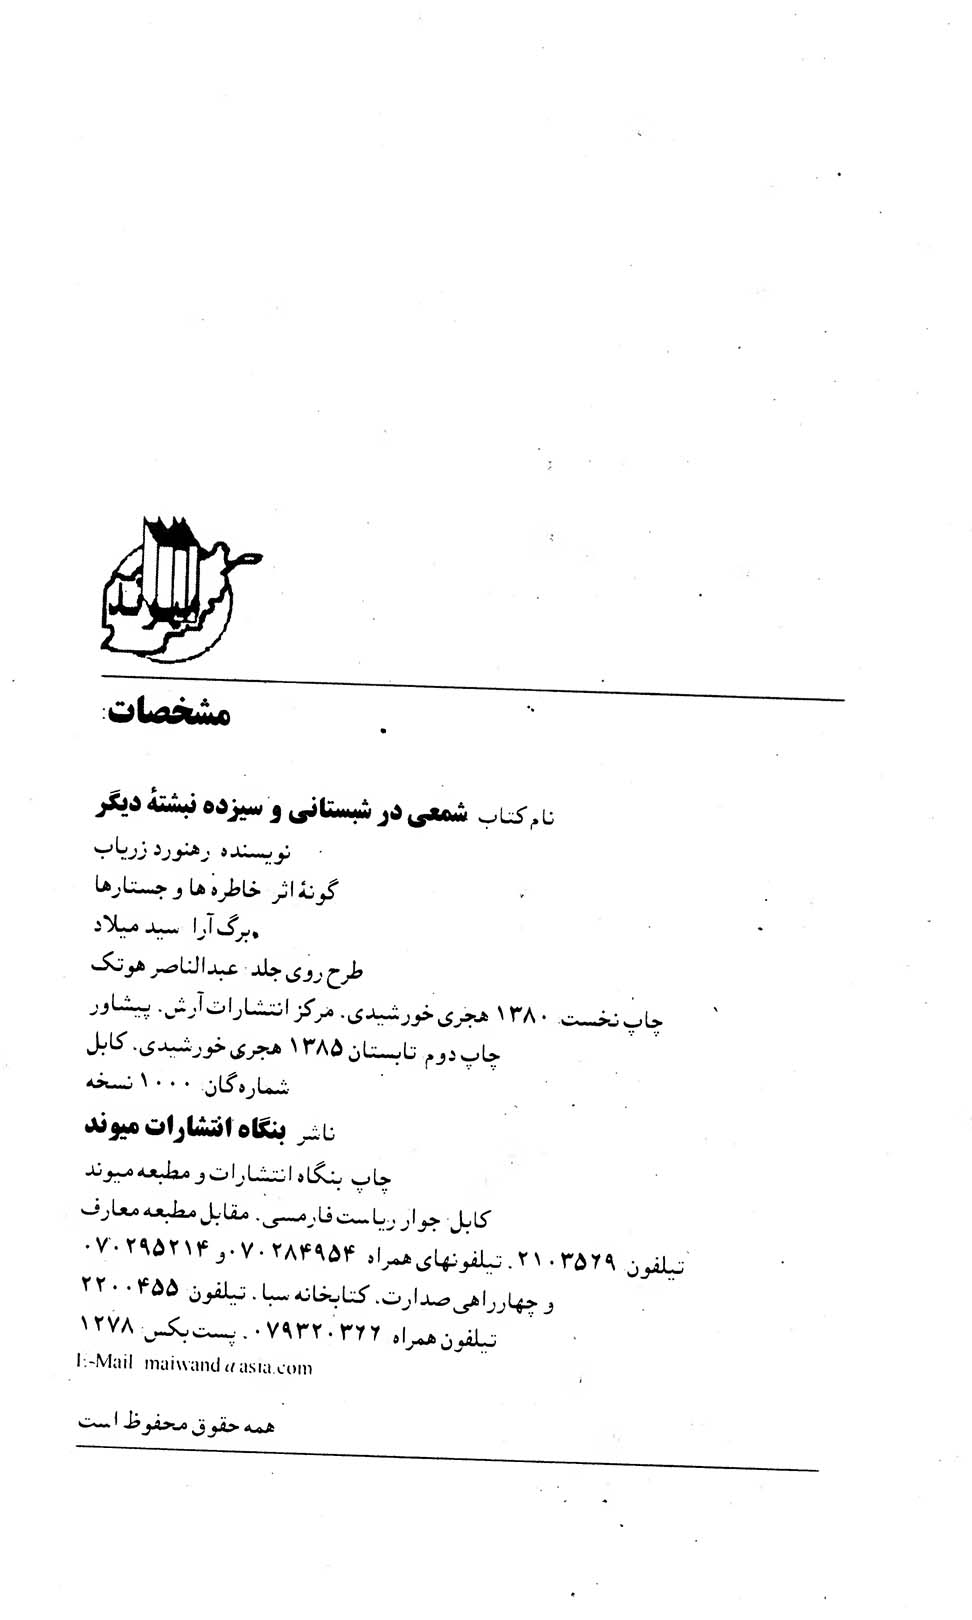 میوند
مشخصات:
نام کتاب شمعی در شبستانی و سیزده نبشتۀ دیگر
نویسنده رهنورد زریاب
گونۀ اثر خاطره ها و جستارها
برگ آرا سید میلاد
طرح روی جلد عبدالناصر هوتک
چاپ نخست ۱۳۸۰ هجری خورشیدی. مرکز انتشارات آرش. پیشاور
چاپ دوم تابستان ۱۳۸۵ هجری خورشیدی. کابل
شماره گان ۱۰۰۰ نسخه
ناشر بنگاه انتشارات میوند
چاپ بنگاه انتشارات و مطبعه میوند
کابل جوار ریاست فارمسی. مقابل مطبعه معارف
تیلفون ۲۱۰۳۵۶۹. تیلفونهای همراه ۰۷۰۲۸۴۹۵۴ و ۰۷۰۲۹۵۲۱۴
و چهارراهی صدارت. کتابخانه سبا. تیلفون ۲۲۰۰۴۵۵
تیلفون همراه ۰۷۹۳۲۰۳۶۶. پست بکس ۱۲۷۸
E-Mail maiwand@asia.com
همه حقوق محفوظ است